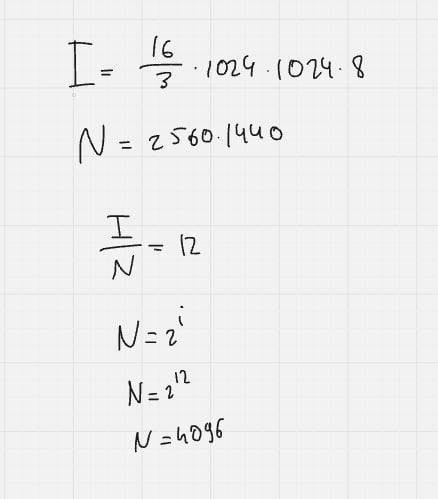 I = 16/3 · 1024 · 1024 · 8
N = 2560 · 1440
I/N = 12
N = 2^i
N = 2^12
N = 4096